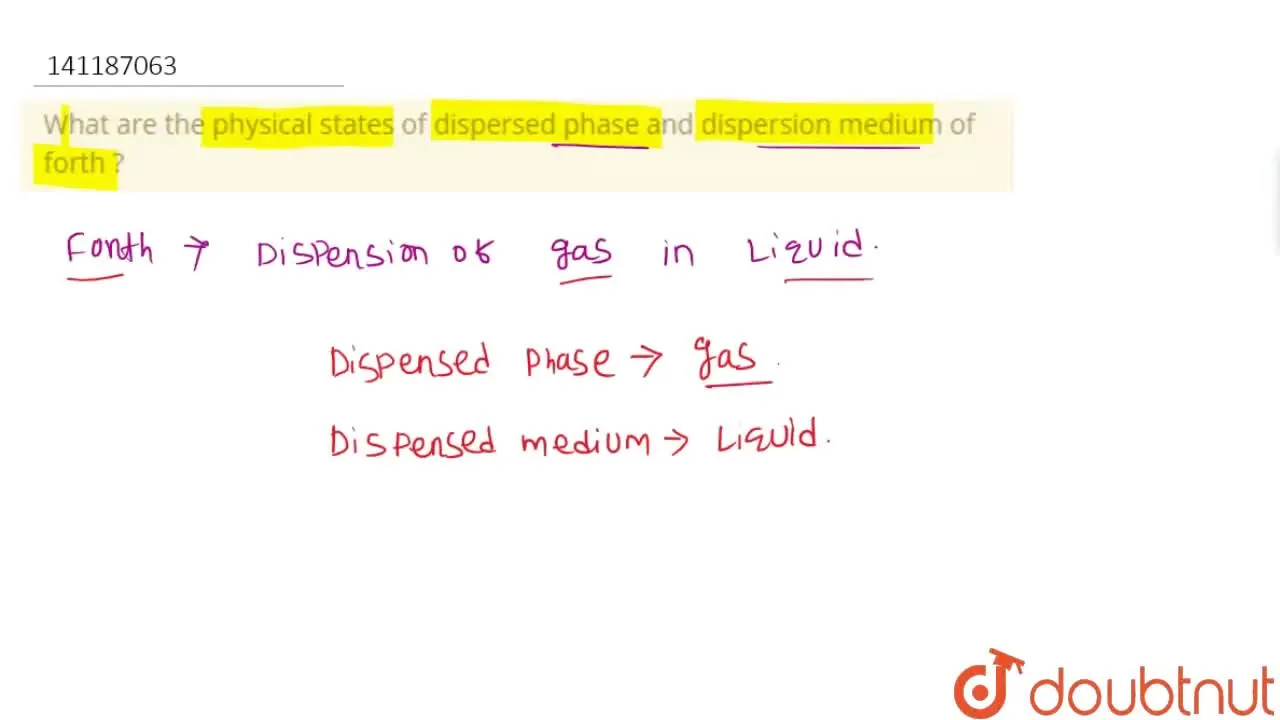 141187063
What are the physical states of dispersed phase and dispersion medium of
forth ?
Forth → Dispersion of gas in Liquid.
Dispersed Phase → gas.
Dispersed medium → Liquid.
doubtnut